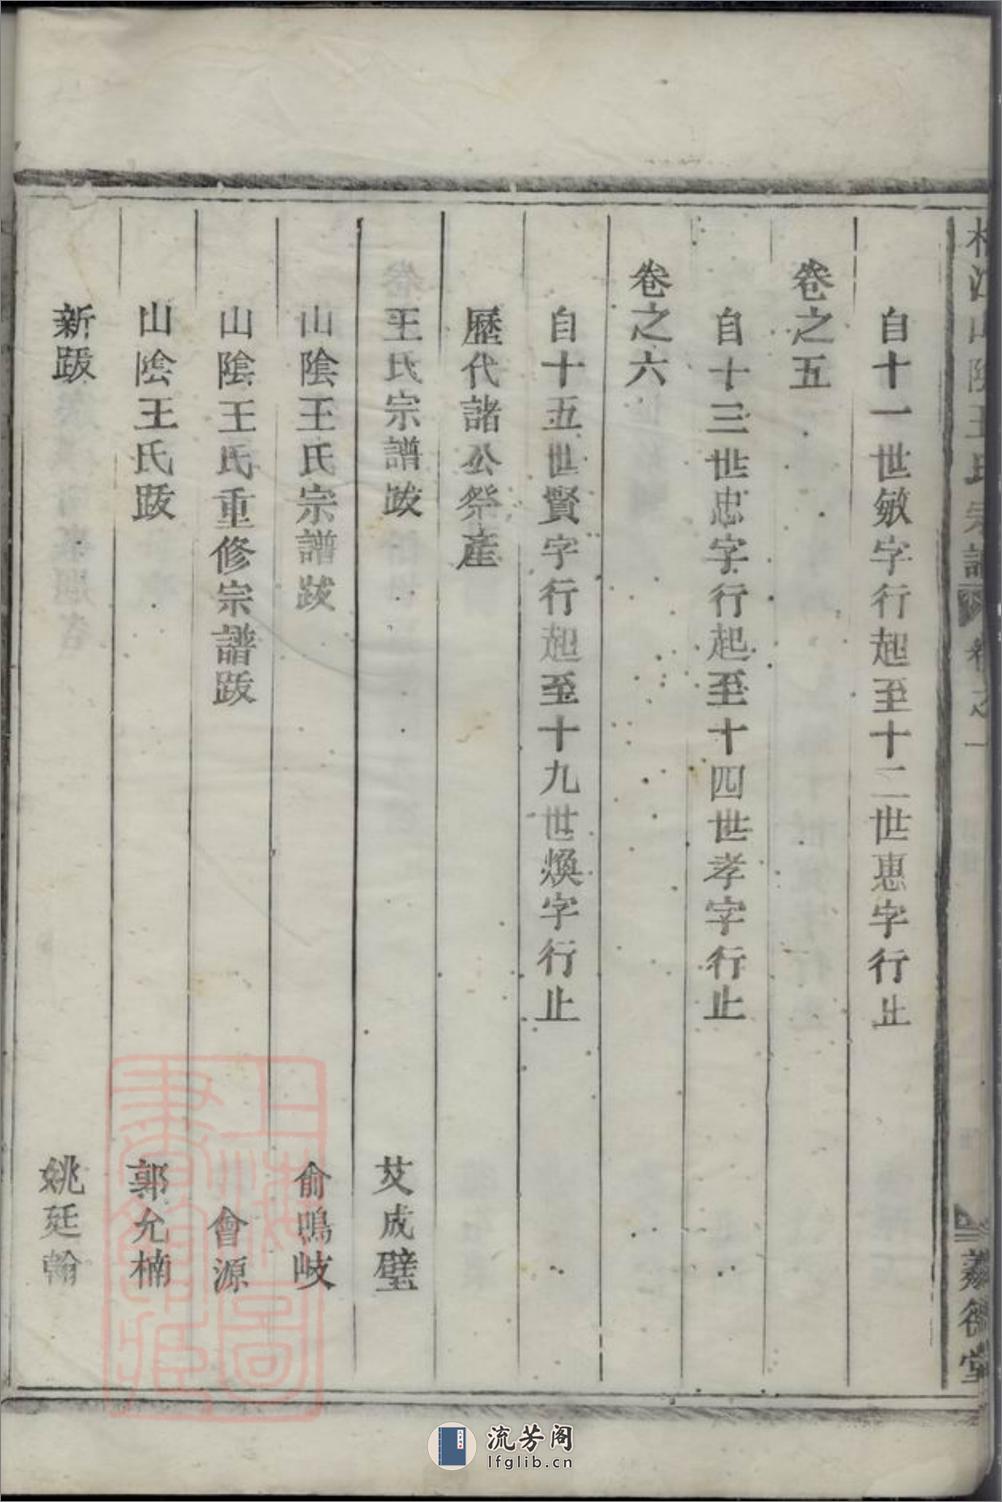 山陰王氏宗譜 卷之一
自十一世敏字行起至十二世惠字行止
卷之五
自十三世忠字行起至十四世孝字行止
卷之六
自十五世賢字行起至十九世煥字行止
歷代諸公祭產
王氏宗譜跋 艾成璧
山陰王氏宗譜跋 俞鳴岐
山陰王氏重修宗譜跋 會源
山陰王氏跋 郭允楠
新跋 姚廷翰
流芳阁
lfglib.cn